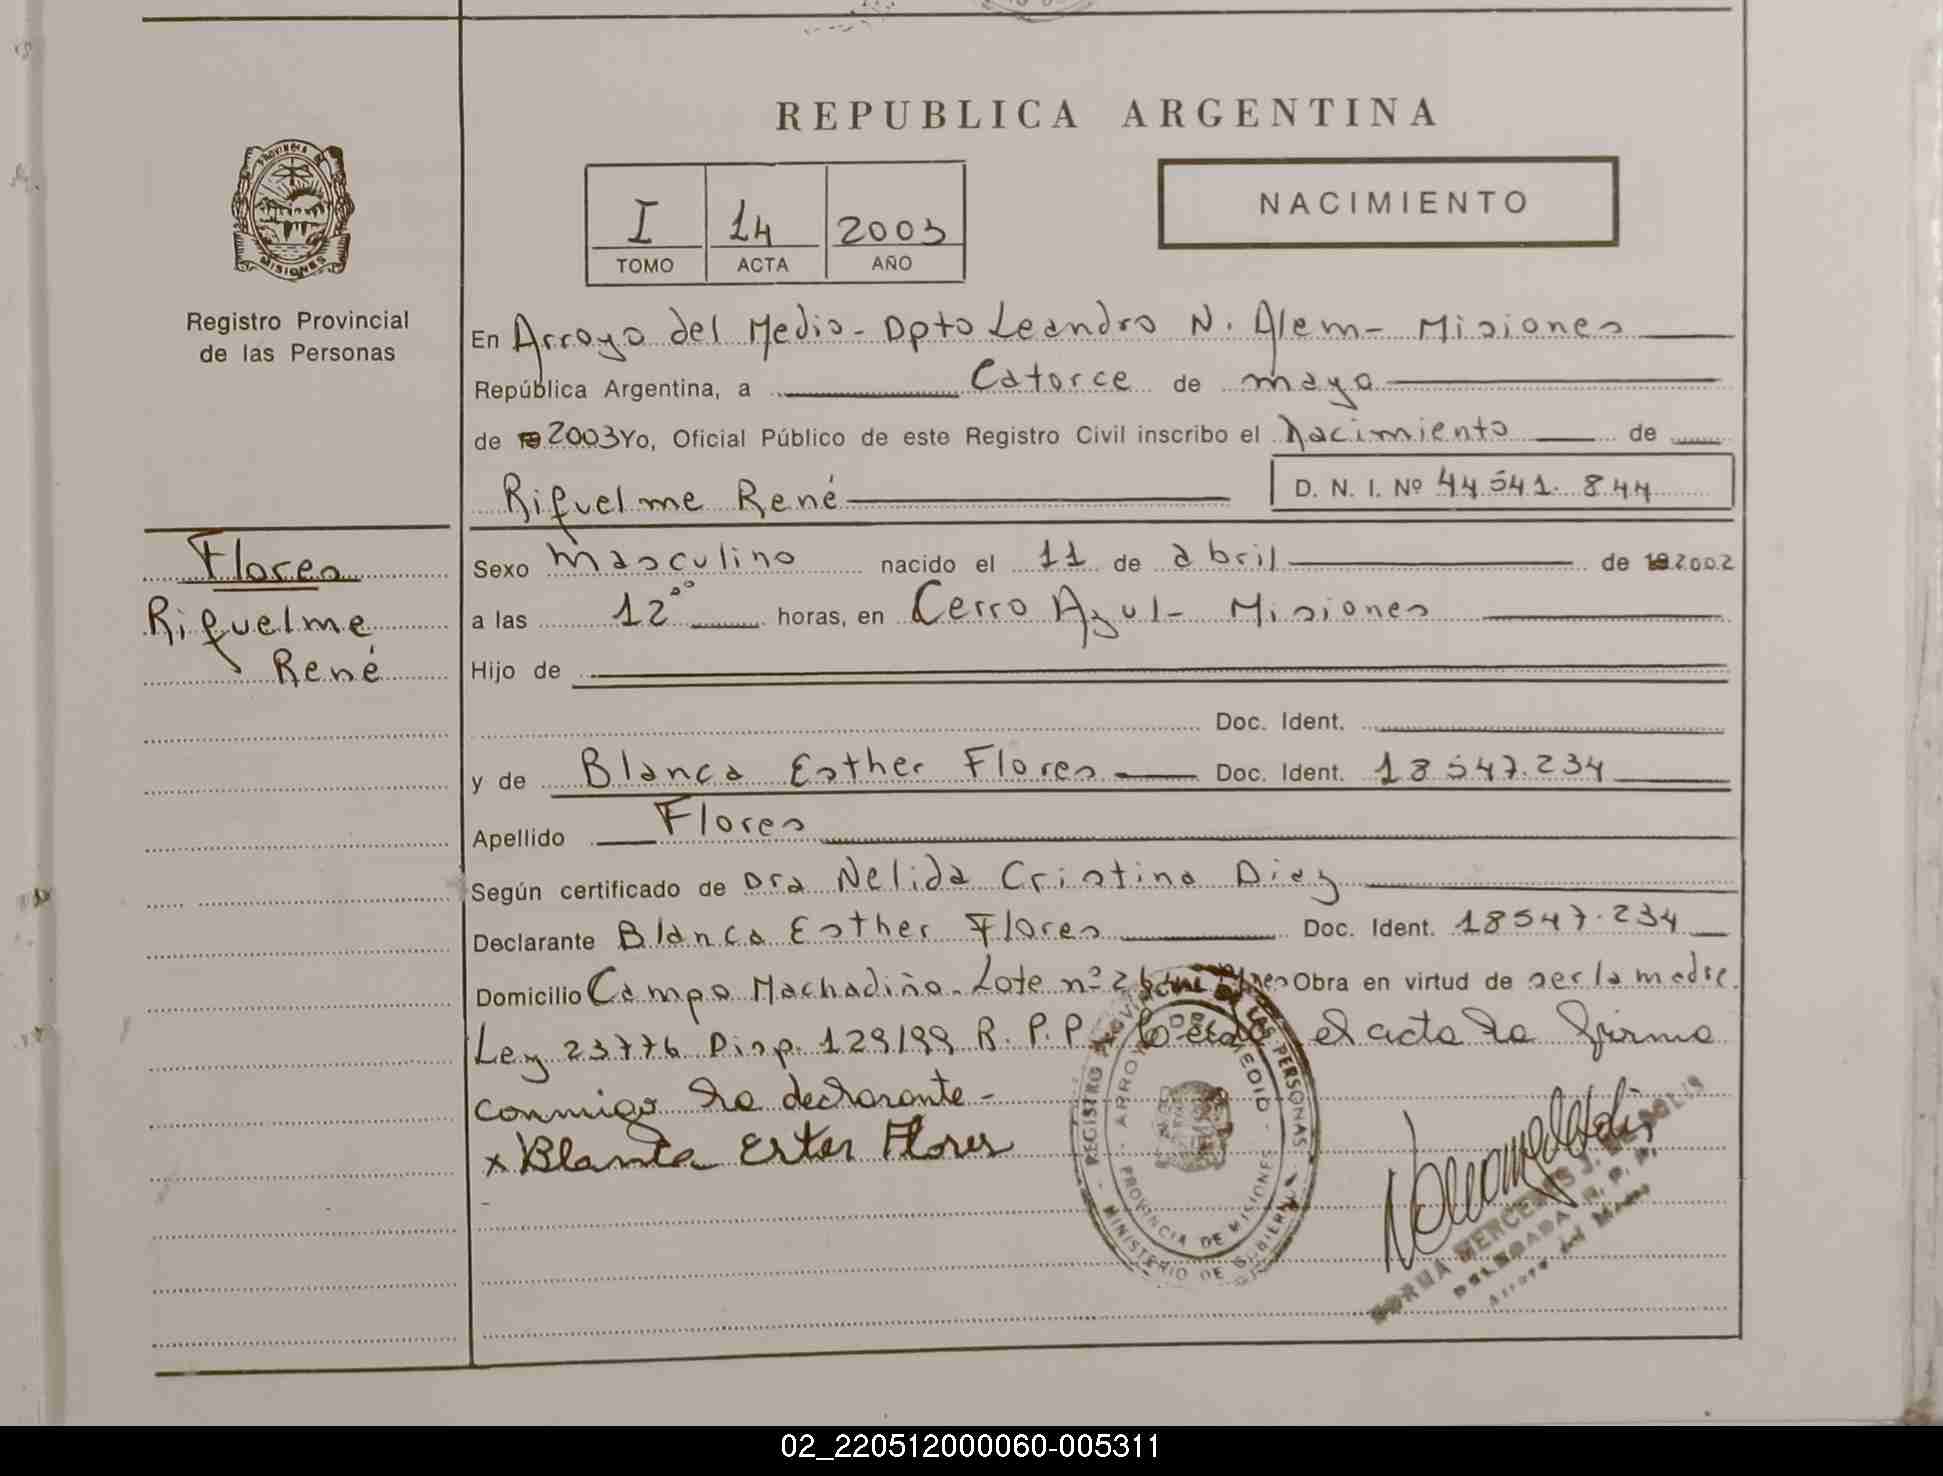 REPUBLICA ARGENTINA
NACIMIENTO
I 14 2003
TOMO ACTA AÑO
PROVINCIA DE
MISIONES
Registro Provincial
de las Personas
En Arroyo del Medio - Dpto Leandro N. Alem - Misiones
República Argentina, a Catorce de mayo
de 19 2003 Yo, Oficial Público de este Registro Civil inscribo el Nacimiento de
Riquelme René D. N. I. Nº 44.541.844
Flores
Riquelme
René
Sexo Masculino nacido el 11 de abril de 19 2002
a las 12°° horas, en Cerro Azul - Misiones
Hijo de
Doc. Ident.
y de Blanca Esther Flores Doc. Ident. 18547.234
Apellido Flores
Según certificado de Dra Nelida Cristina Diez
Declarante Blanca Esther Flores Doc. Ident. 18547.234
Domicilio Campo Machadiño - Lote nº 2 Obra en virtud de ser la madre.
Ley 23776 Disp. 129/99 R. P. P. el acta la firma
conmigo la declarante -
x Blanca Ester Flores
REGISTRO PROVINCIAL DE LAS PERSONAS
ARROYO DEL MEDIO
PROVINCIA DE MISIONES
MINISTERIO DE GOBIERNO
NORMA MERCEDES J.
DELEGADA R. P. P.
Arroyo del Medio
02_220512000060-005311